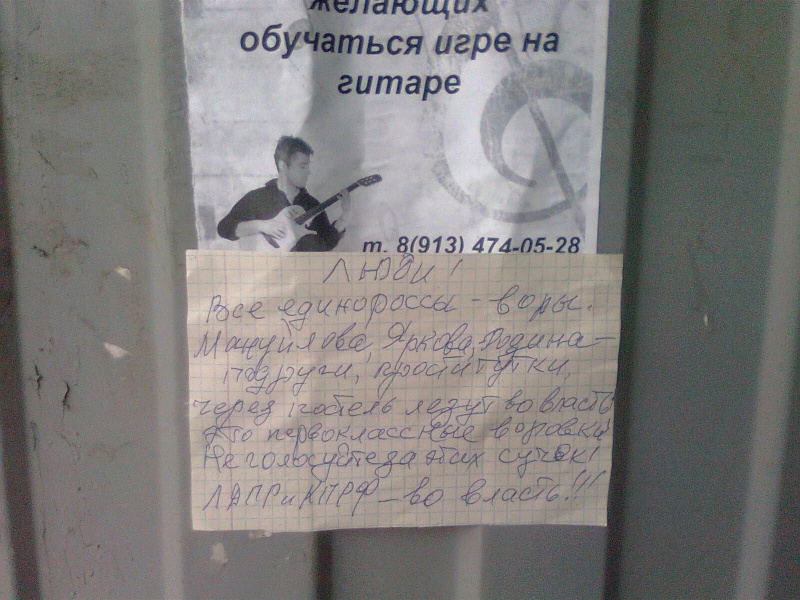 желающих
обучаться игре на
гитаре
т. 8(913) 474-05-28
ЛЮДИ!
Все единороссы - воры.
Мануйлова, Яркова, Родина -
подруги, проститутки,
через постель лезут во власть
Это первоклассные воровки
Не голосуйте за этих сучек!
ЛДПР и КПРФ - во власть!!!